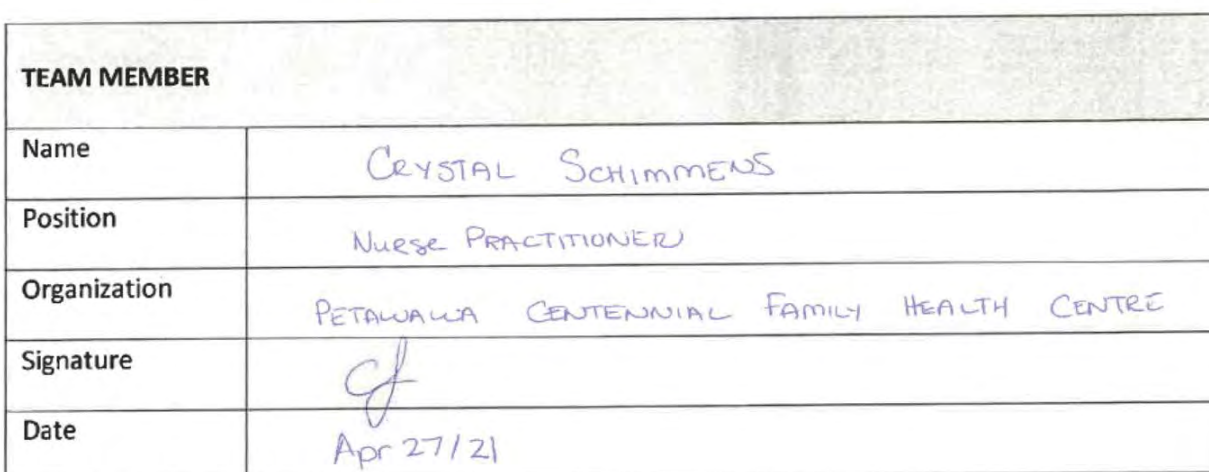 TEAM MEMBER
Name CRYSTAL SCHIMMENS
Position Nurse PRACTITIONER
Organization PETAWAWA CENTENNIAL FAMILY HEALTH CENTRE
Signature
Date Apr 27/21